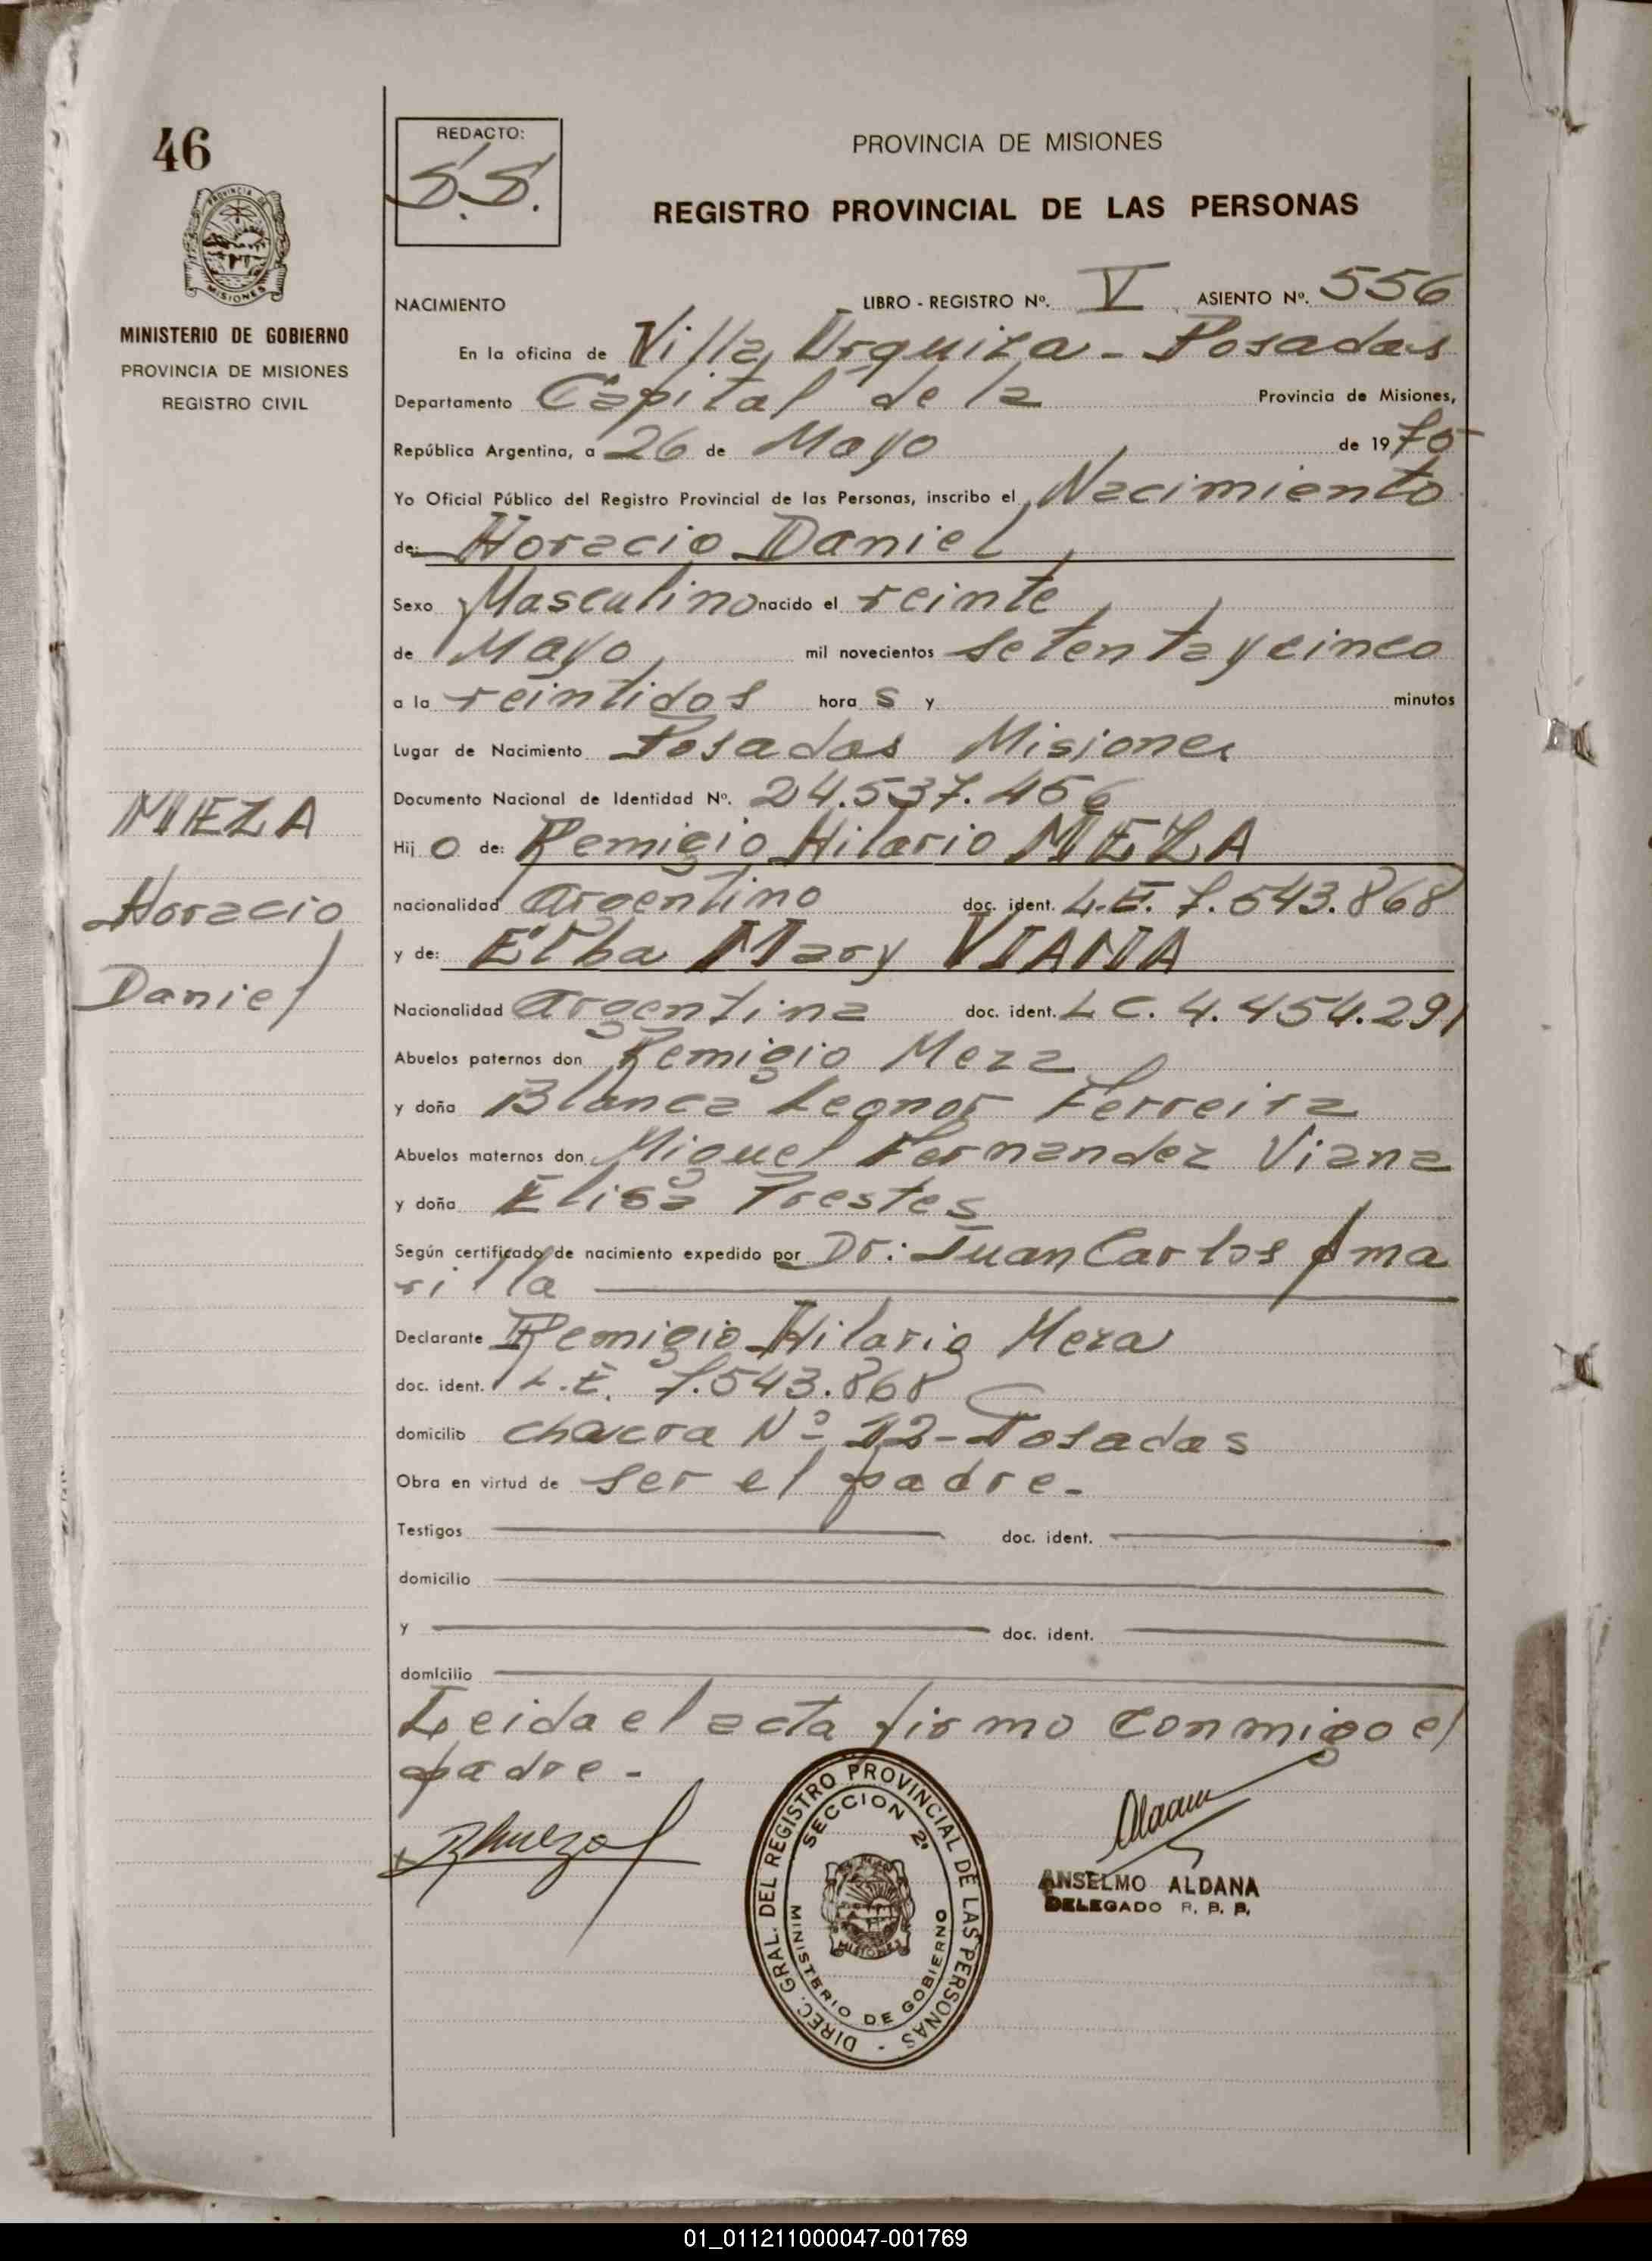 46
REDACTO:
S.S.
PROVINCIA DE MISIONES
REGISTRO PROVINCIAL DE LAS PERSONAS
PROVINCIA DE
MISIONES
MINISTERIO DE GOBIERNO
PROVINCIA DE MISIONES
REGISTRO CIVIL
NACIMIENTO LIBRO - REGISTRO Nº. V ASIENTO Nº. 556
En la oficina de Villa Urquiza - Posadas
Departamento Capital de la Provincia de Misiones,
República Argentina, a 26 de Mayo de 1975
Yo Oficial Público del Registro Provincial de las Personas, inscribo el Nacimiento
de: Horacio Daniel
Sexo Masculino nacido el veinte
de Mayo mil novecientos setenta y cinco
a la veintidos hora s y minutos
Lugar de Nacimiento Posadas Misiones
Documento Nacional de Identidad Nº. 24.537.456
Hij o de: Remigio Hilario MEZA
nacionalidad argentino doc. ident. L.E. 7.543.868
y de: Elba Mary VIANA
Nacionalidad argentina doc. ident. L C. 4.454.291
Abuelos paternos don Remigio Meza
y doña Blanca Leonor Ferreira
Abuelos maternos don Miguel Fernandez Viana
y doña Elisa Prestes
Según certificado de nacimiento expedido por Dr: Juan Carlos Ama
rilla
Declarante Remigio Hilario Meza
doc. ident. L.E. 7.543.868
domicilio chacra Nº 12 - Posadas
Obra en virtud de ser el padre.-
Testigos doc. ident.
domicilio
y doc. ident.
domicilio
Leida el acta firmo conmigo el
padre.-
MEZA
Horacio
Daniel
DIREC. GRAL. DEL REGISTRO PROVINCIAL DE LAS PERSONAS -
SECCION 2º
MINISTERIO DE GOBIERNO
MISIONES
ANSELMO ALDANA
DELEGADO R. P. P.
01_011211000047-001769